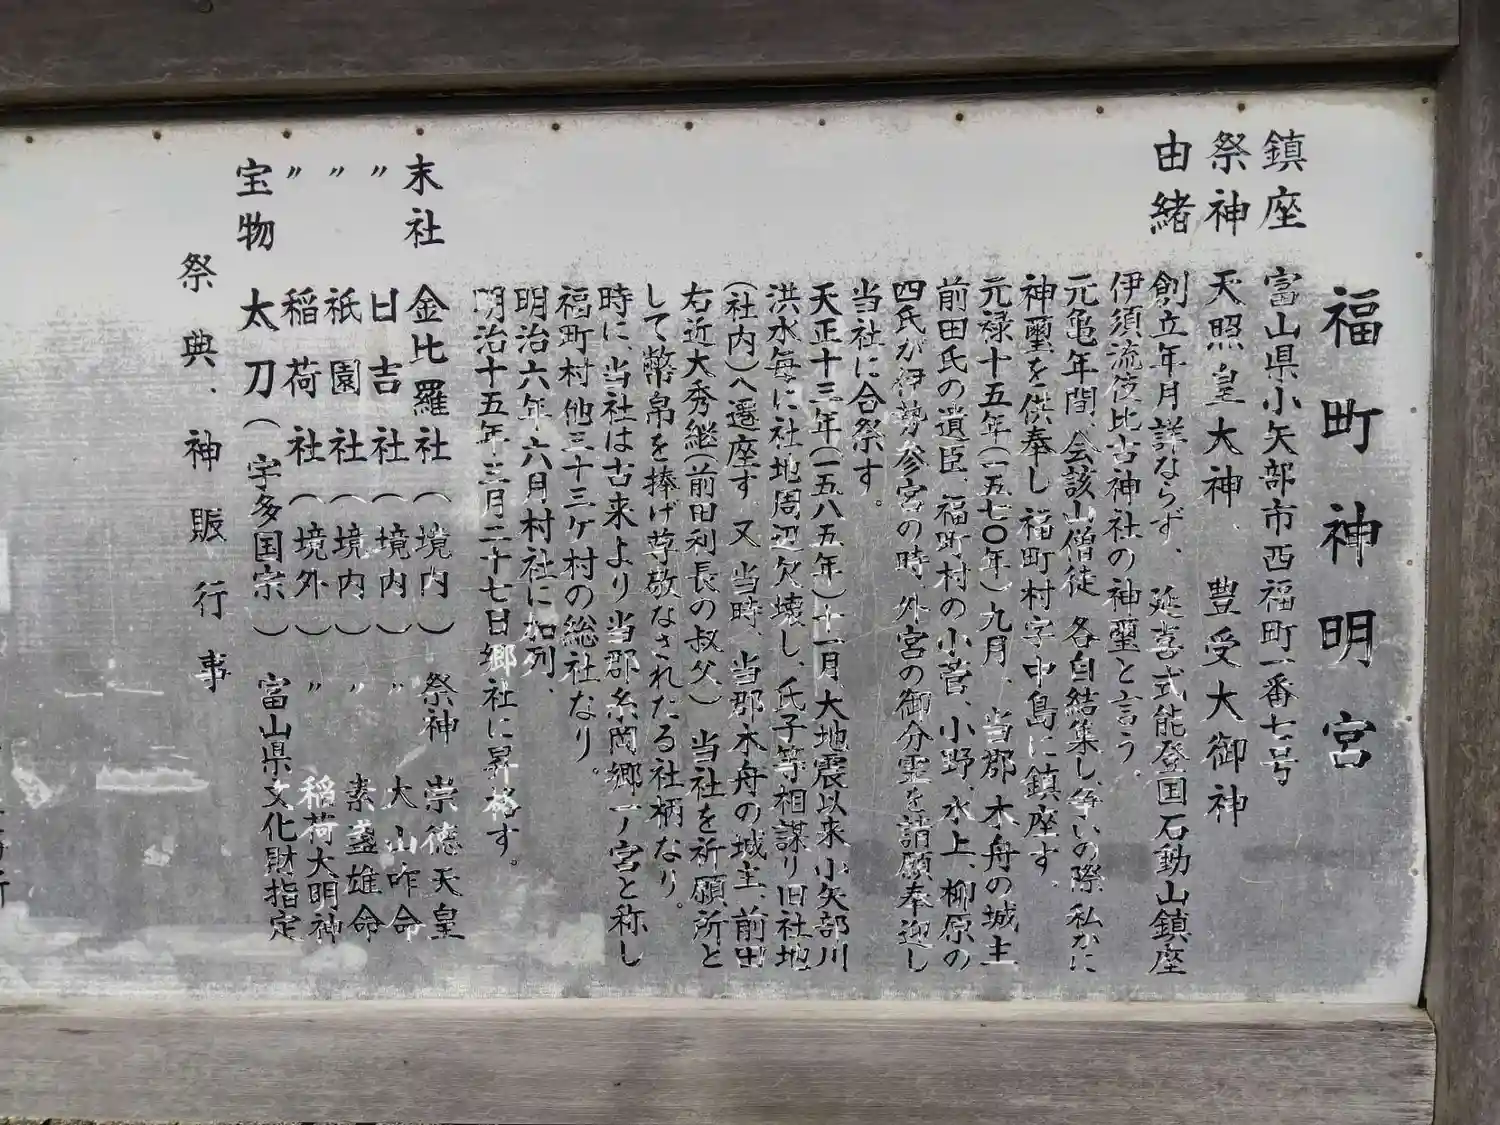 福町神明宮
鎮座 富山県小矢部市西福町一番七号
祭神 天照皇大神、豊受大御神
由緒 創立年月詳ならず、延喜式能登国石動山鎮座
伊須流伎比古神社の神璽と言う。
元亀年間、会該山僧徒各自結集し、争いの際私かに
神璽を供奉し福町村字中島に鎮座す。
元禄十五年(一五七〇年)九月、当郡木舟の城主
前田氏の遺臣、福町村の小菅、小野、水上、柳原の
四氏が伊勢参宮の時、外宮の御分霊を請願奉迎し
当社に合祭す。
天正十三年(一五八五年)十一月大地震以来小矢部川
洪水毎に社地周辺欠壊し、氏子等相謀り旧社地
(社内)へ遷座す。又、当時、当郡木舟の城主、前田
右近大秀継(前田利長の叔父)当社を祈願所と
して幣帛を捧げ尊敬なされたる社柄なり。
時に、当社は古来より当郡糸岡郷一ノ宮と称し
福町村他三十三ケ村の総社なり。
明治六年六月村社に加列、
明治十五年三月二十七日郷社に昇格す。
末社 金比羅社(境内) 祭神 崇徳天皇
〃 日吉社(境内) 〃 大山咋命
〃 祇園社(境内) 〃 素盞雄命
〃 稲荷社(境外) 〃 稲荷大明神
宝物 太刀(宇多国宗) 富山県文化財指定
祭典、神賑行事